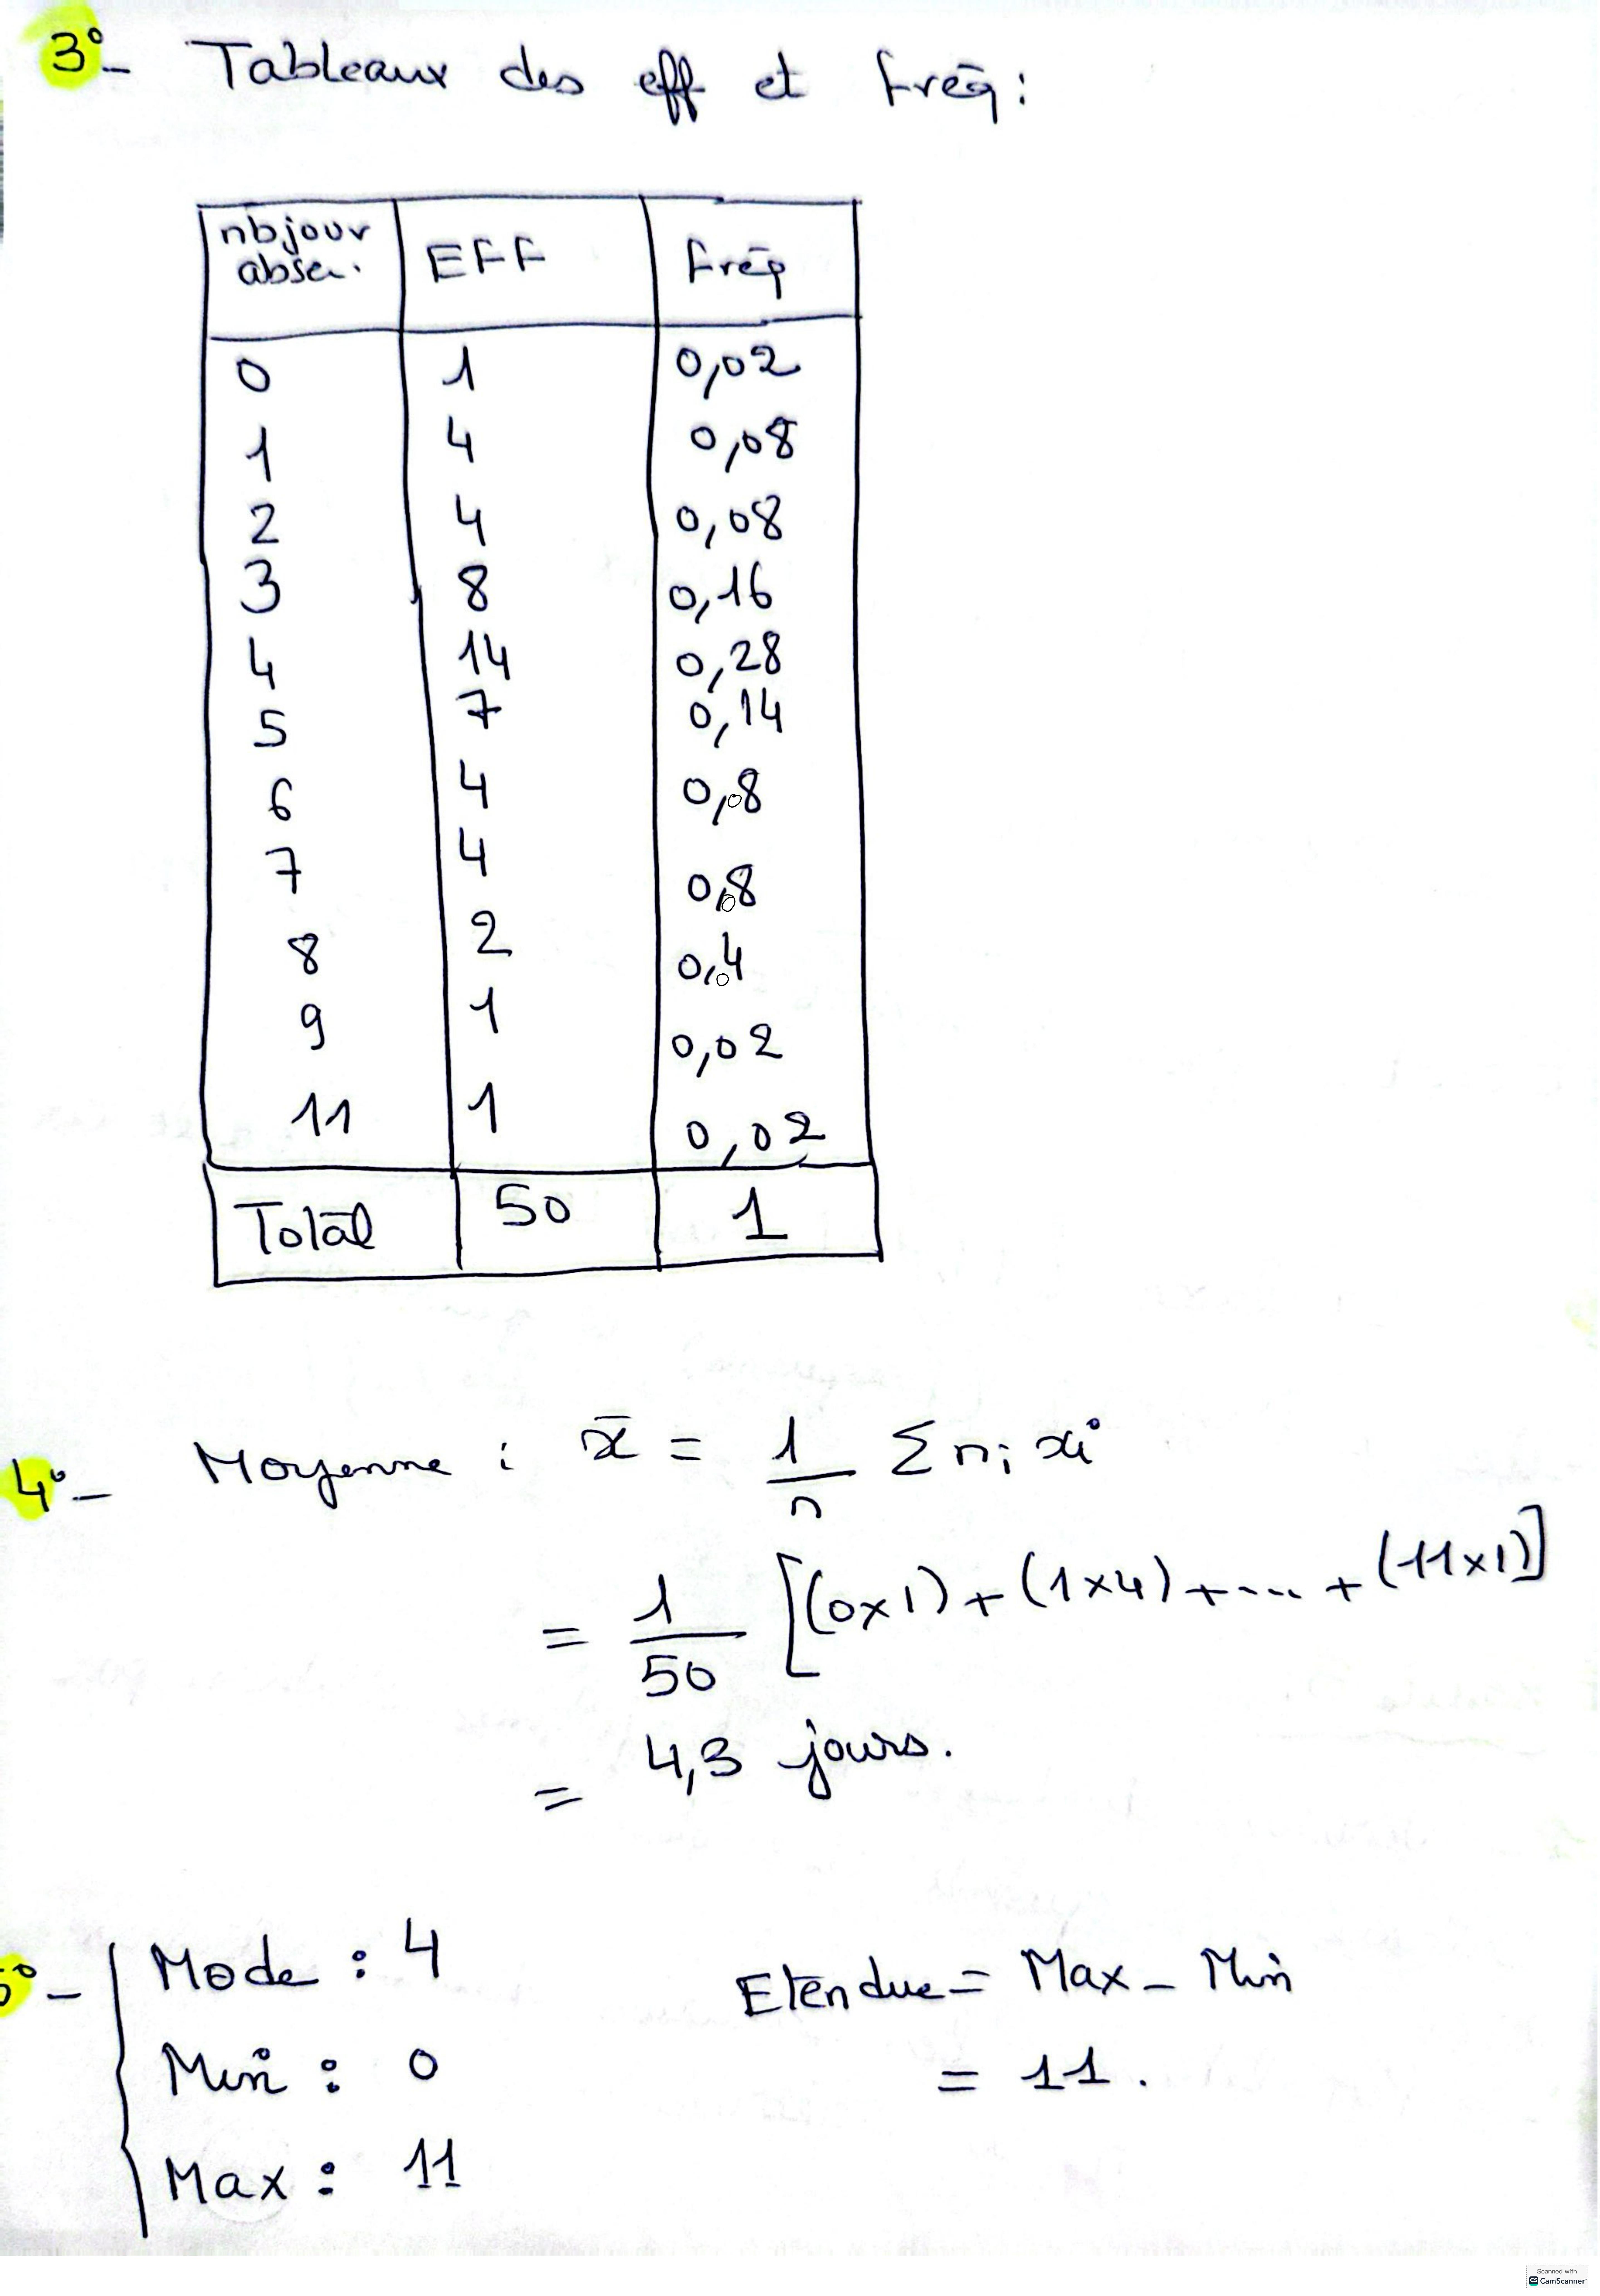 3°- Tableaux des eff et fréq :
nb jour EFF fréq
absen.
0 1 0,02
1 4 0,08
2 4 0,08
3 8 0,16
4 14 0,28
5 7 0,14
6 4 0,08
7 4 0,08
8 2 0,04
9 1 0,02
11 1 0,02
Total 50 1
4°- Moyenne : x̄ = 1/n Σ ni xi
= 1/50 [(0x1) + (1x4) + --- + (11x1)]
= 4,3 jours.
5°- Mode : 4 Etendue = Max - Min
Min : 0 = 11.
Max : 11
Scanned with
CS CamScanner